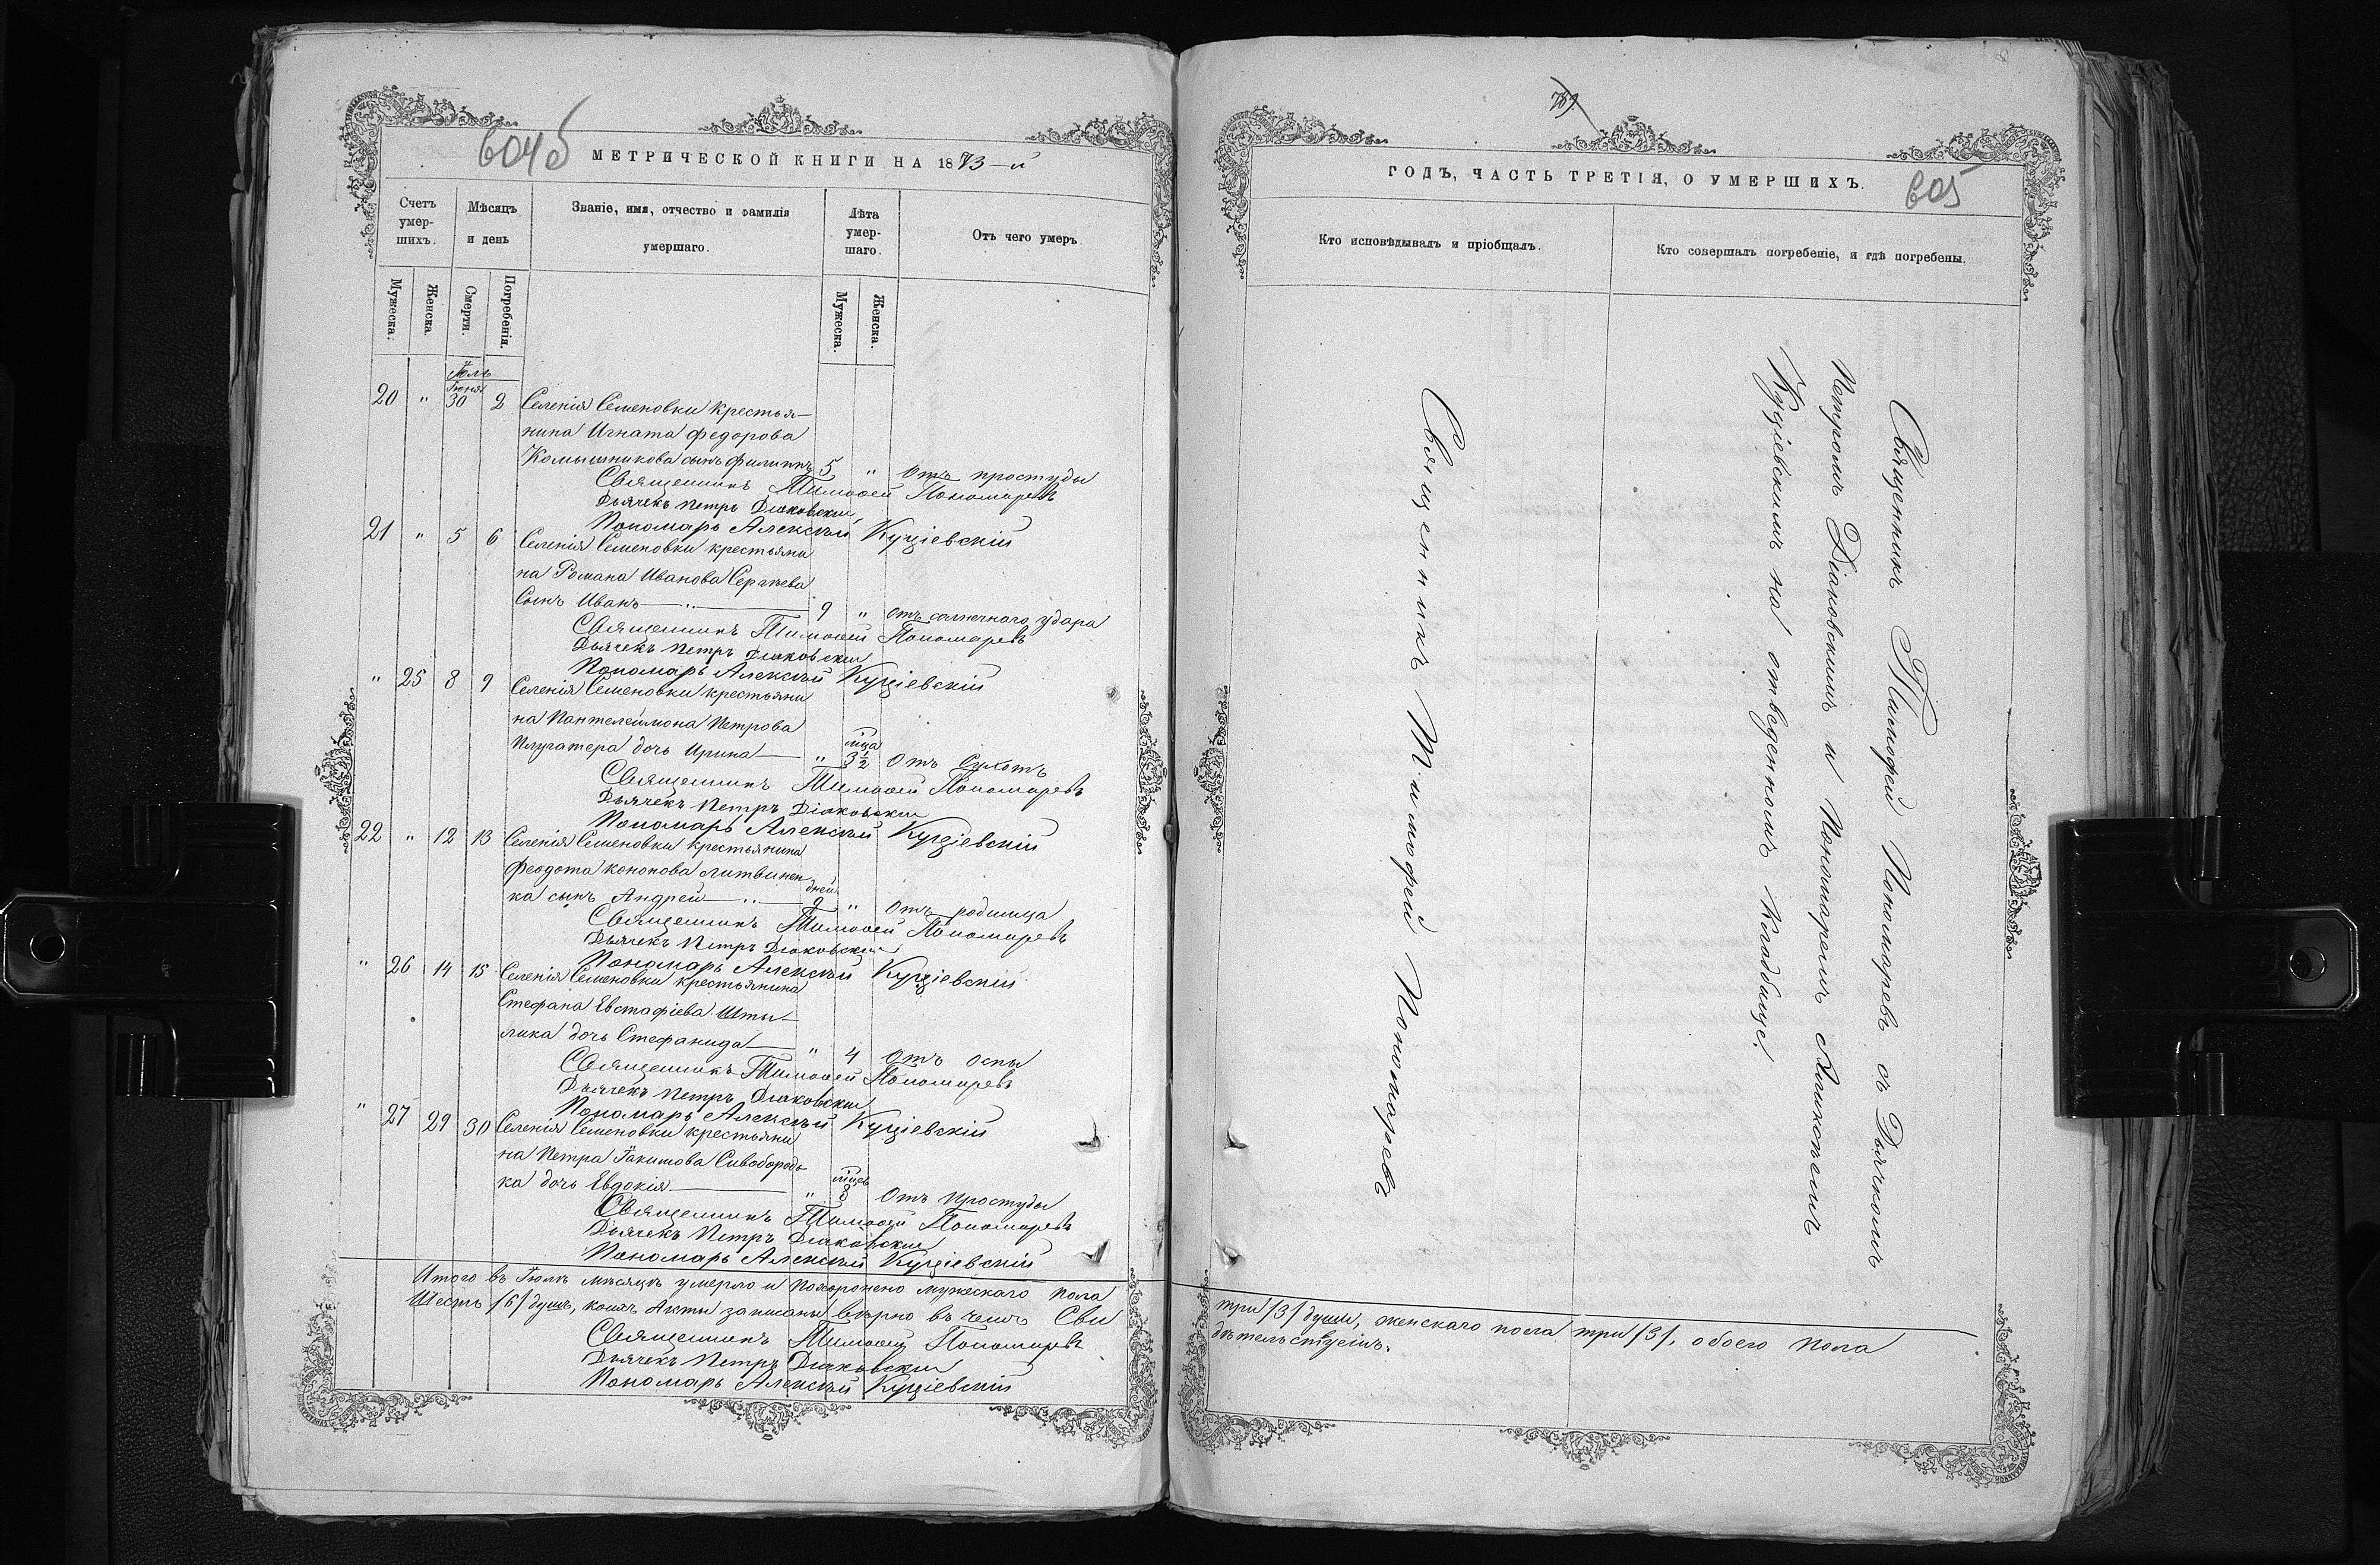 604б
МЕТРИЧЕСКОЙ КНИГИ НА 1873-й
Счетъ умер-шихъ.
Мѣсяцъ и день
Званіе, имя, отчество и фамилія умершаго.
Лѣта умер-шаго.
Отъ чего умеръ
Мужеска.
Женска.
Смерти.
Погребенія.
Мужеска.
Женска.
Іюль
Іюня
20 " 30 2 Селенія Семеновки крестья-
нина Игната Федорова
Комышникова сынъ Филиппъ 5 " Отъ простуды
Священникъ Тимоѳей Пономаревъ
Дьячекъ Петръ Діаковскій
Пономарь Алексѣй Куціевскій
21 " 5 6 Селенія Семеновки крестьяни
на Романа Иванова Сергѣева
Сынъ Иванъ — " — 9 " Отъ солнечнаго удара
Священникъ Тимоѳей Пономаревъ
Дьячекъ Петръ Діаковскій
Пономарь Алексѣй Куціевскій
" 25 8 9 Селенія Семеновки крестьяни
на Пантелеймона Петрова
мца
Плугатера дочь Ирина — " 3½ Отъ Сухотъ
Священникъ Тимоѳей Пономаревъ
Дьячекъ Петръ Діаковскій
Пономарь Алексѣй Куціевскій
22 " 12 13 Селенія Семеновки крестьянина
Феодота Кононова Литвинен
дней
ка сынъ Андрей — " — 9 " Отъ родимца
Священникъ Тимоѳей Пономаревъ
Дьячекъ Петръ Діаковскій
Пономарь Алексѣй Куціевскій
" 26 14 15 Селенія Семеновки крестьянина
Стефана Евстафіева Шты-
лика дочь Стефанида — " 4 Отъ оспы
Священникъ Тимоѳей Пономаревъ
Дьячекъ Петръ Діаковскій
Пономарь Алексѣй Куціевскій
" 27 29 30 Селенія Семеновки крестьяни
на Петра Іакимова Сивобородь
мцевъ
ка дочь Евдокія — " 8 Отъ простуды
Священникъ Тимоѳей Пономаревъ
Дьячекъ Петръ Діаковскій
Пономарь Алексѣй Куціевскій
Итого въ Іюлѣ мѣсяцѣ умерло и похоронено мужескаго пола
Шесть /6/ душъ, коихъ Акты записаны вѣрно въ чемъ Сви
Священникъ Тимоѳей Пономаревъ
Дьячекъ Петръ Діаковскій
Пономарь Алексѣй Куціевскій
789
ГОДЪ, ЧАСТЬ ТРЕТІЯ, О УМЕРШИХЪ.
605
Кто исповѣдывалъ и пріобщалъ.
Кто совершалъ погребеніе, и гдѣ погребены.
Священникъ Тимофей Пономаревъ
Священникъ Тимофей Пономаревъ съ Дьячкомъ
Петромъ Діаковскимъ и Пономаремъ Алексѣемъ
Куціевскимъ на отведенномъ Кладбище.
три /3/ души, женскаго пола три /3/, обоего пола
дѣтельствуемъ.